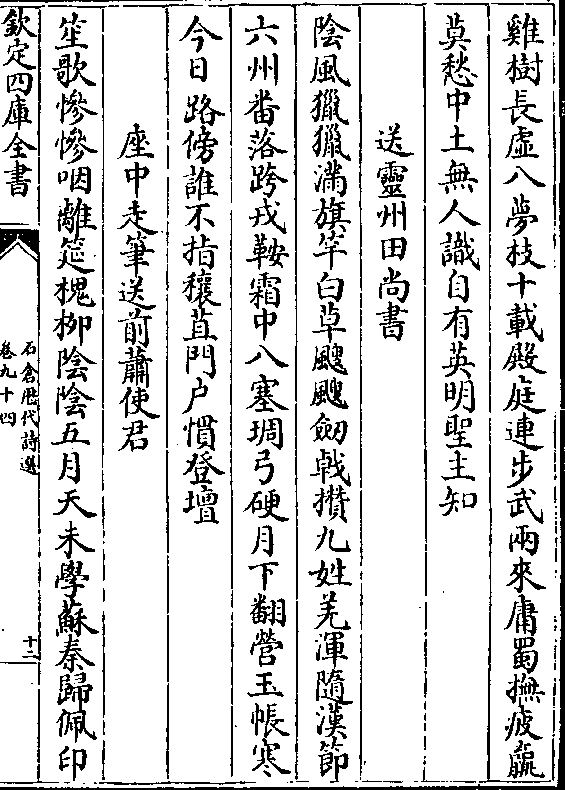 雞樹長虛八夢枝十載殿庭連步武兩來庸蜀撫疲羸
莫愁中土無人識自有英明聖主知
送靈州田尚書
陰風獵獵滿旗竿白草颼颼劒㦸攅九姓羌渾隨漢節
六州番落跨戎鞍霜中八塞琱弓硬月下翻營玉帳寒
今日路傍誰不指穰苴門户慣登壇
座中走筆送前蕭使君
笙歌慘慘咽離筵槐柳陰陰五月天未學蘇秦歸佩印
欽定四庫全書
石倉歷代詩選
卷九十四
十二